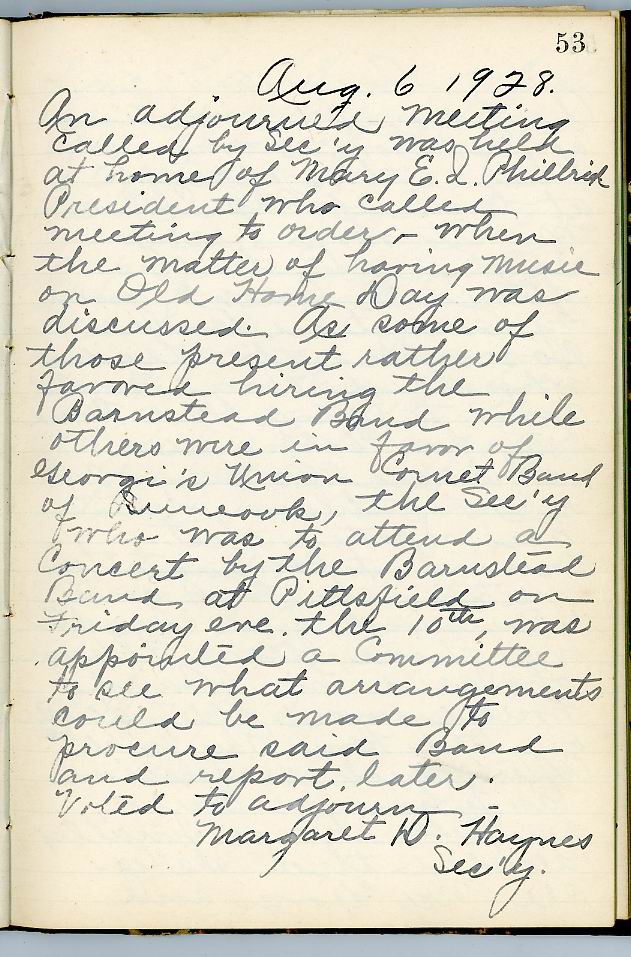 53
Aug. 6 1928.
An adjourned meeting
called by Sec'y was held
at home of Mary E. I. Philbrick
President who called
meeting to order - when
the matter of having music
on Old Home Day was
discussed. As some of
those present rather
favored hiring the
Barnstead Band while
others were in favor of
Georgi's Union Cornet Band
of Suncook, the Sec'y
who was to attend a
Concert by the Barnstead
Band at Pittsfield on
Friday eve. the 10th, was
appointed a Committee
to see what arrangements
could be made to
procure said Band
and report later.
Voted to adjourn -
Margaret D. Haynes
Sec'y.